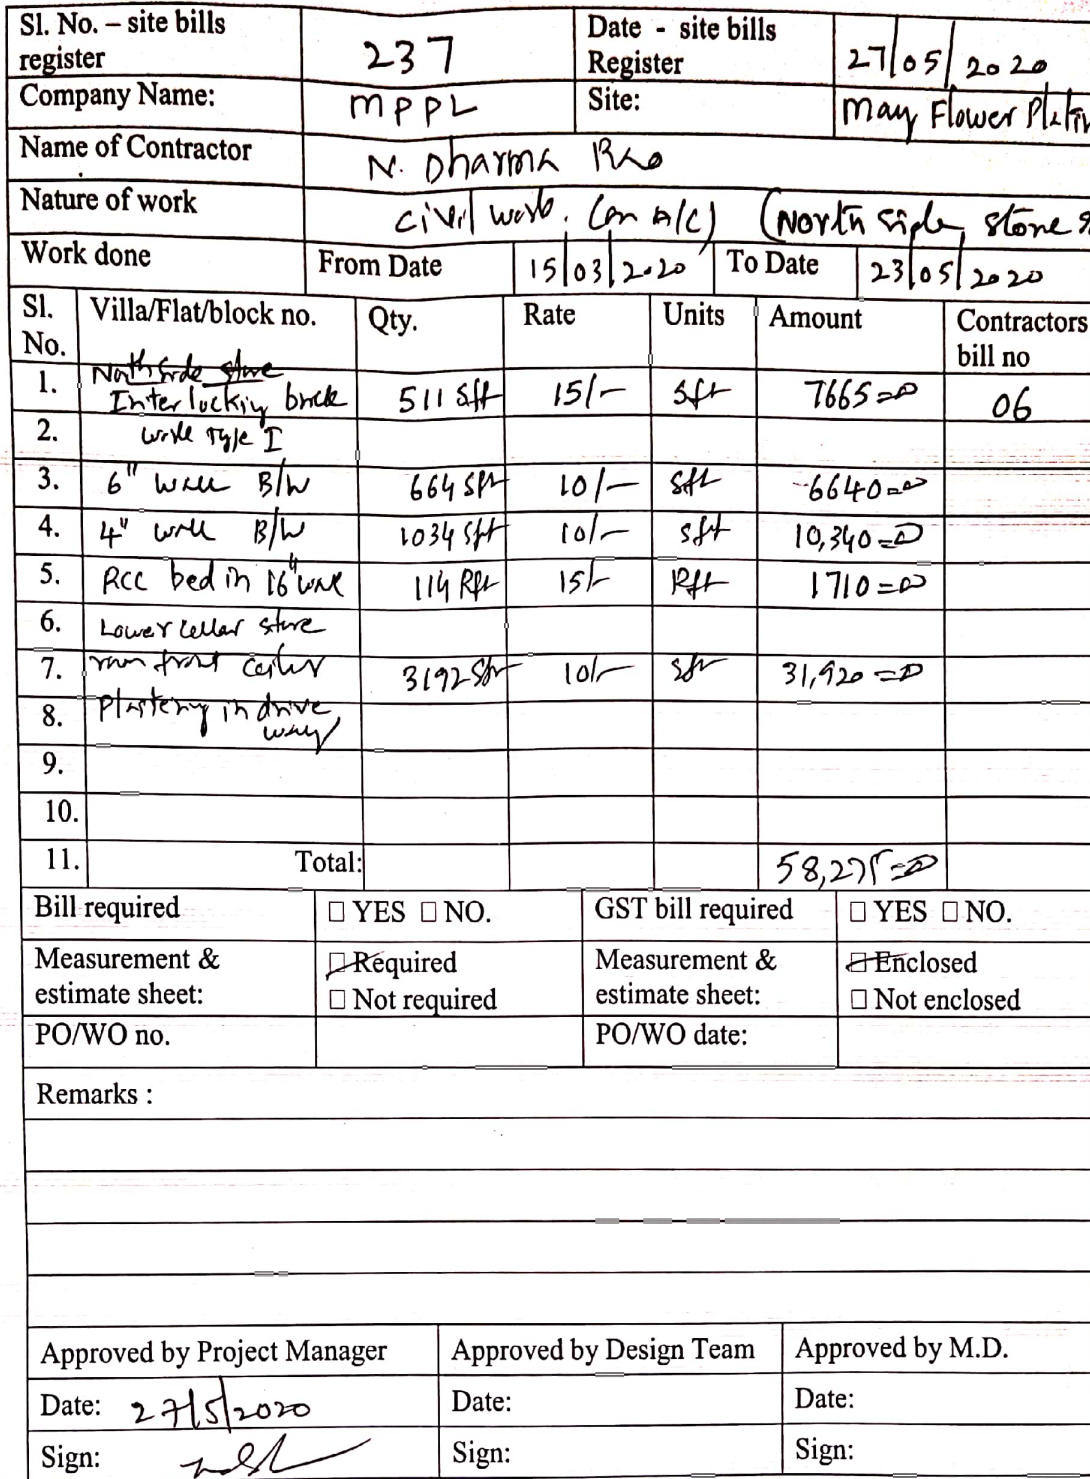 Sl. No. – site bills register 237 Date - site bills Register 27/05/2020
Company Name: MPPL Site: May Flower
Name of Contractor N. Dharma Rao
Nature of work Civil work. (on A/C) (North side, stone
Work done From Date 15/03/2020 To Date 23/05/2020
Sl. No. Villa/Flat/block no. Qty. Rate Units Amount Contractors bill no
1. North side
Interlocking brick 511 Sft 15/- Sft 7665=00 06
2. work Type I
3. 6" wall B/W 664 Sft 10/- Sft 6640=00
4. 4" wall B/W 1034 Sft 10/- Sft 10,340=00
5. RCC bed in 16" wall 114 Rft 15/- Rft 1710=00
6. Lower cellar
7. front 3192 Sft 10/- Sft 31,920=00
8. Plastering in drive
way
9.
10.
11. Total: 58,275=00
Bill required □ YES □ NO. GST bill required □ YES □ NO.
Measurement & estimate sheet: □ Required Measurement & estimate sheet: □ Enclosed
□ Not required □ Not enclosed
PO/WO no. PO/WO date:
Remarks :
Approved by Project Manager Approved by Design Team Approved by M.D.
Date: 27/5/2020 Date: Date:
Sign: Sign: Sign: